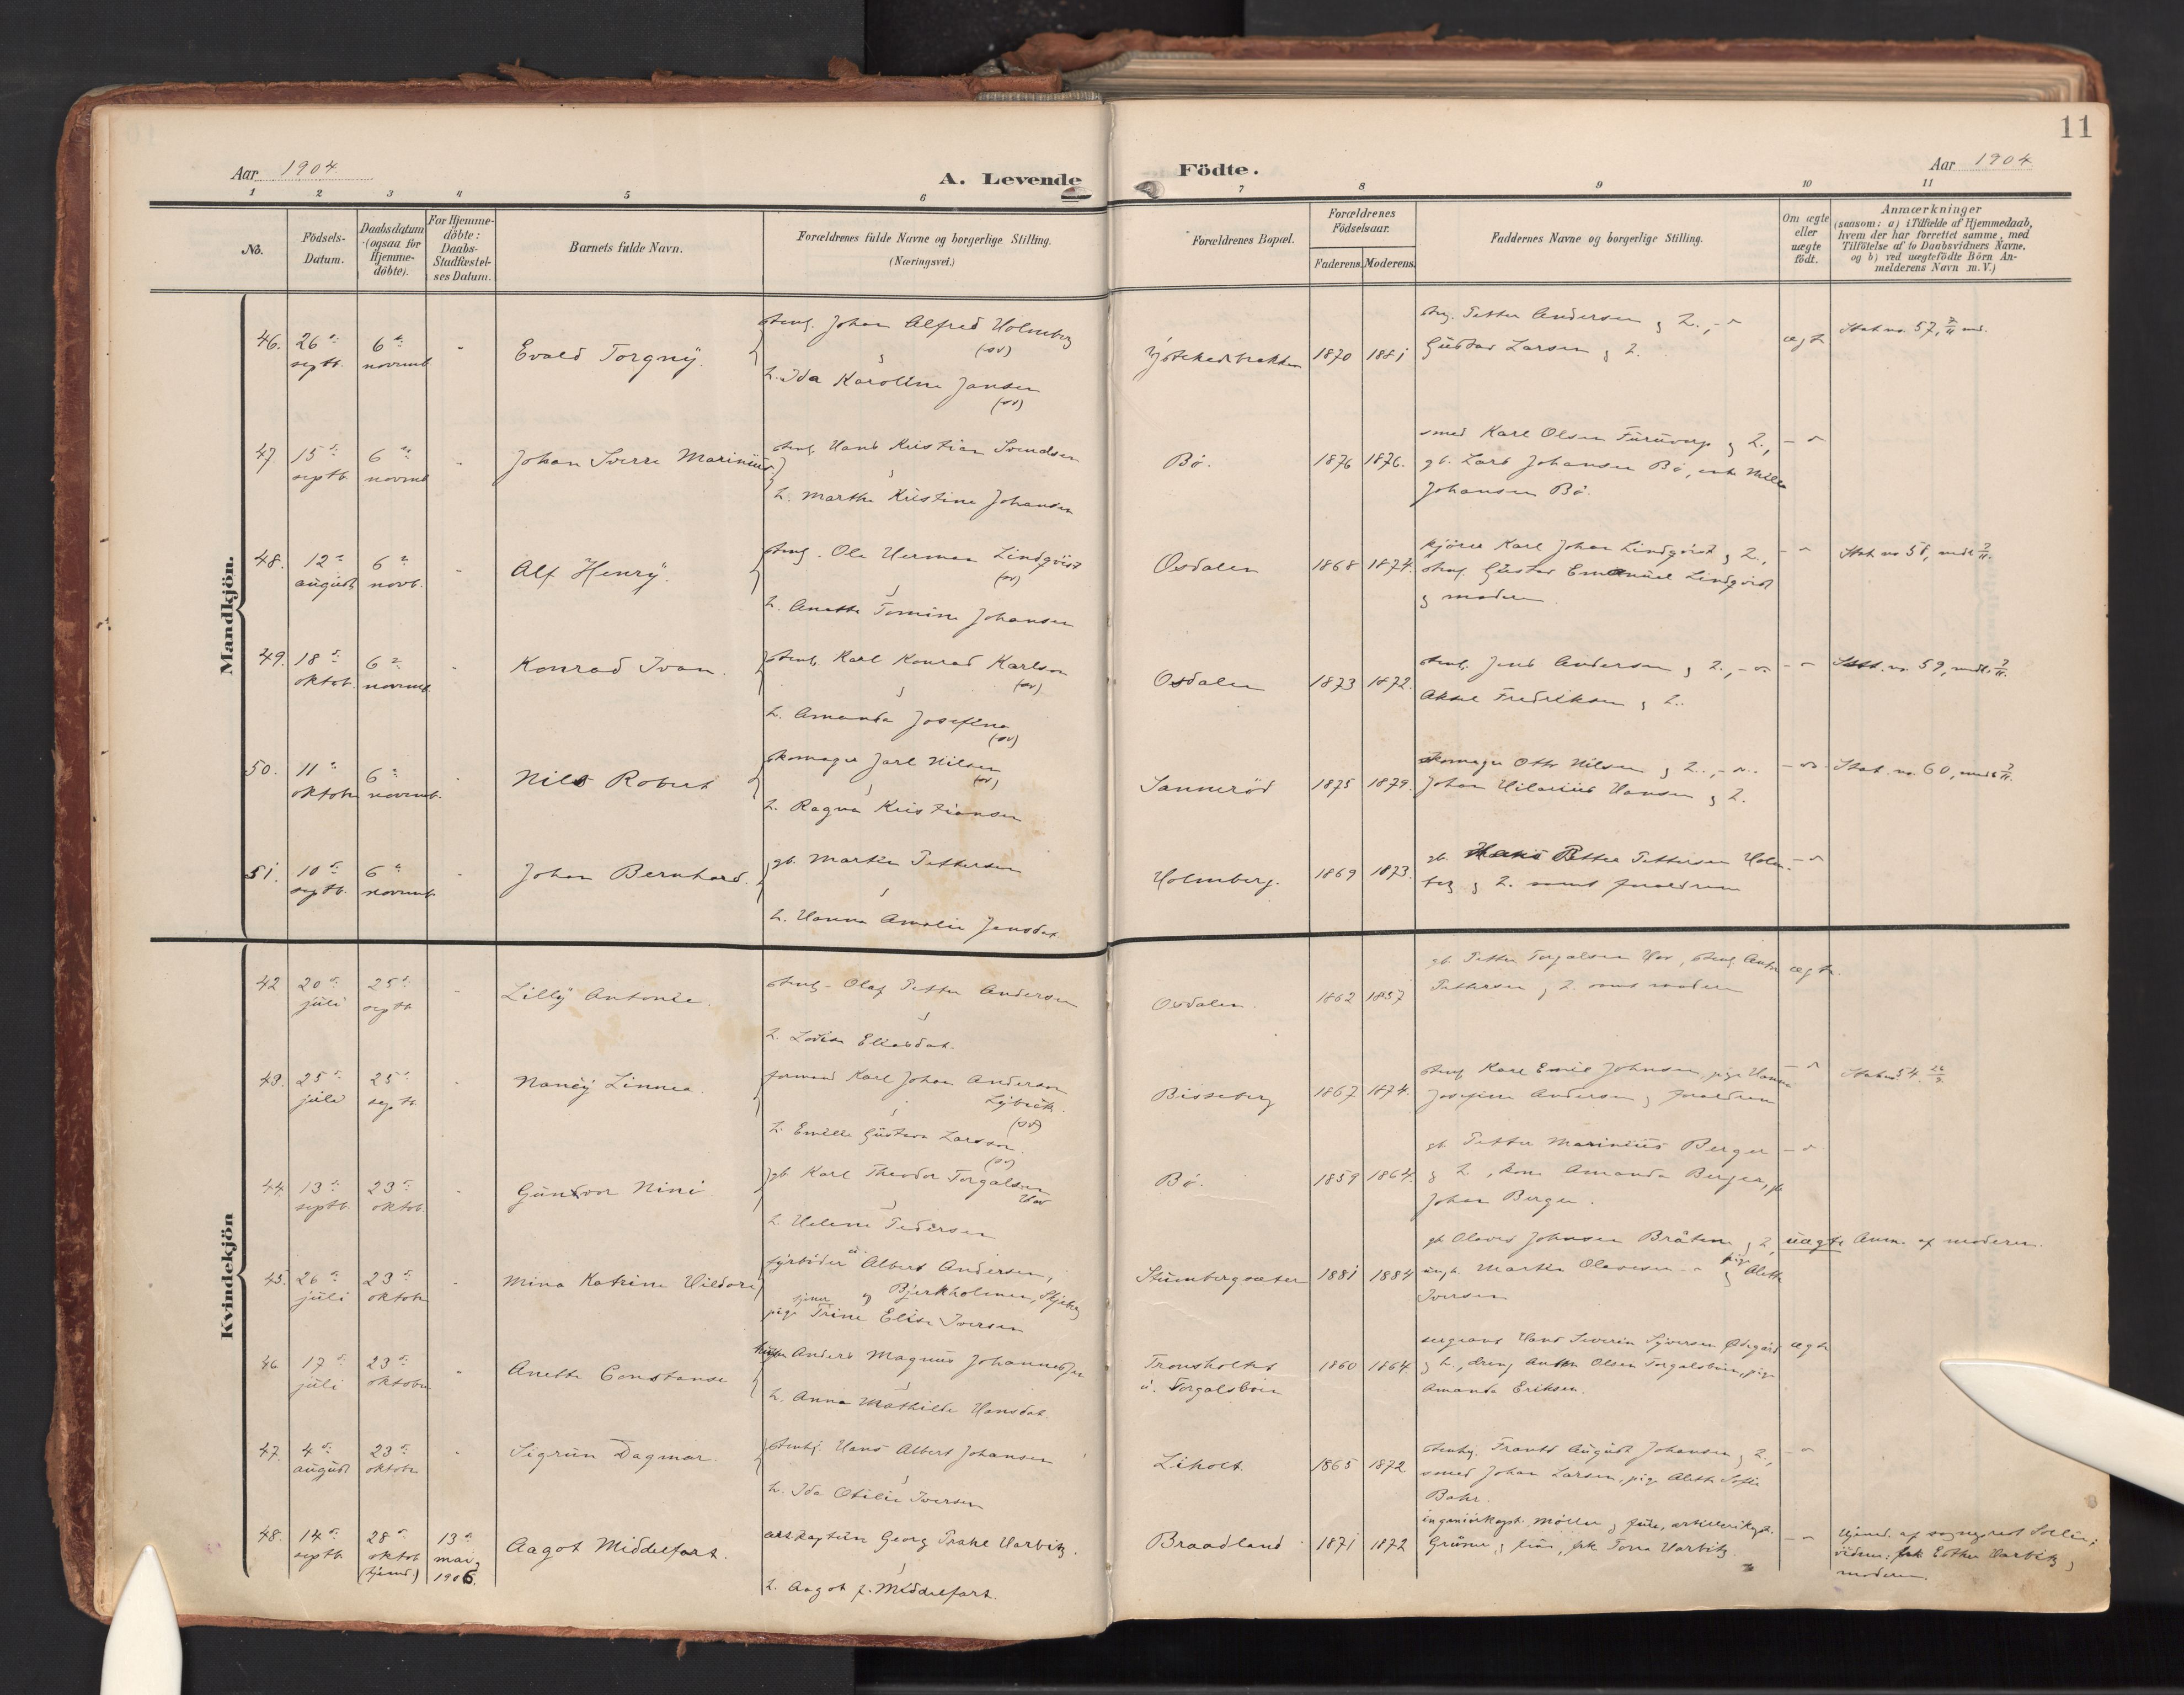 11
Aar 1904
A. Levende
Födte.
Aar 1904
1 2 3 4 5 6 7 8 9 10 11
No.
Födsels-
Datum.
Daabsdatum
(ogsaa for
Hjemme-
döbte).
For Hjemme-
döbte:
Daabs-
Stadfæstel-
ses Datum.
Barnets fulde Navn.
Forældrenes fulde Navne og borgerlige Stilling.
(Næringsvei.)
Forældrenes Bopæl.
Forældrenes
Födselsaar.
Faderens. Moderens.
Faddernes Navne og borgerlige Stilling.
Om ægte
eller
uægte
födt.
Anmærkninger
(saasom: a) i Tilfælde af Hjemmedaab,
hvem der har forrettet samme, med
Tilföielse af to Daabsvidners Navne,
og b) ved uægtefödte Börn An-
melderens Navn m. V.)
Mandkjön.
46. 26 septb. 6 novemb. - Evald Torgny. stenh. Johan Alfred Holmberg (sv)
h. Ida Karoline Jansen (sv)
1870 1881
Petter Andersen & h.,
Gustav Larsen & h.
ægte
Stat. no. 57,
47. 15 septb. 6 novemb - Johan Sverre Marinius stenh. Hans Kristian Svendsen
h. Marthe Kristine Johansen
Bö. 1876 1876.
smed Karl Olsen Furuvarp & h.,
gb. Lars Johansen Bö, enke Mille
Johansen Bö.
48. 12 august 6 novb. - Alf Henry. stenh. Ole Herman Lindqvist (sv)
h. Anette Tomine Johansen
Osdalen 1868 1874.
kjörer Karl Johan Lindqvist & h.,
stenh. Gustav Emanuel Lindqvist
& moderen.
Stat. no 58,
49. 18 oktob. 6 novemb. - Konrad Ivan. stenh. Karl Konrad Karlson (sv)
h. Amanda Josefina (sv)
Osdalen 1873 1872.
stenh. Jens Andersen & h.,
Aksel Fredriksen & h.
Stat. no. 59,
50. 11 oktober 6 novemb. - Nils Robert skomager Jarl Nilsen (sv)
h. Ragna Kristiansen
Sannerød 1875 1879.
skomager Otto Nilsen & h.,
Johan Hilarius Hansen & h.
Stat. no. 60,
51. 10 septb. 6 novemb. - Johan Bernhard. gb. Martin Pettersen
h. Hanna Amalie Jensdat.
Holmberg. 1869 1873.
gb. Hans Petter Pettersen Holm-
berg & h. samt forældrene
Kvindekjön
42 20 juli 25 septb. - Lilly Antonie. stenh. Olaf Petter Andersen
h. Lovise Eliasdat.
Osdalen. 1862 1857
gb. Petter Torgalsen Hov, stenh. Anton
Pettersen & h. samt moderen
ægte.
43. 25 juli 25 septb. - Nancy Linnea. formand Karl Johan Anderson
(sv)
h. Emilie Gustava Larsson (sv)
Bisseberg 1867 1874.
stenh. Karl Emil Johnsen, pige Hanna
Josefine Andersen & forældrene
Stat no 54.
44. 13 septb. 23 oktob. - Gunvor Nini gb. Karl Theodor Torgalsen
Hov
h. Helene Pedersen
Bö. 1859 1864.
gb. Petter Marinius Berger
& h., kone Amanda Berger,
Johan Berger.
45. 26 juli 23 oktober - Mina Katrine Vildore fyrböder Albert Andersen,
Bjerkholmen, Skjeberg
pige Trine Elise Iversen
Stumbergsæter 1881 1884
gb Olaves Johnsen Bråten & h,
ungk. Martin Olavesen & pige Aleth
Iversen
uægte Anm. af moderen.
46 17 juli 23 oktober Anette Constanse Anders Magnus Johannesen
h. Anna Mathilde Hansdat.
Tronsholtet
u. Torgalsböen 1860 1864.
sergeant Hans Severin Syversen Ödegård
& h., dreng Anton Olsen Torgalsböen, pige
Amanda Eriksen.
ægte
47. 4 august 23 oktober - Sigrun Dagmar. stenhg. Hans Albert Johansen
h. Ida Otilie Iversen
Liholt. 1865 1872
stenhg. Frants August Johansen & h.,
smed Johan Larsen, pige Aleth Sofie
Bahr.
48. 14 septb. 28 oktob (hjemd.) 13 mai 1906. Aagot Middelfart. Georg Prahl Harbitz.
h. Aagot f. Middelfart.
Braadland 1871 1872
ingeniörkapt. Möller & frue, artillerikapt.
Grüner & frue, frk Tora Harbitz
Hjemd. af sogneprest
vidner: frk Esther Harbitz &
moderen.